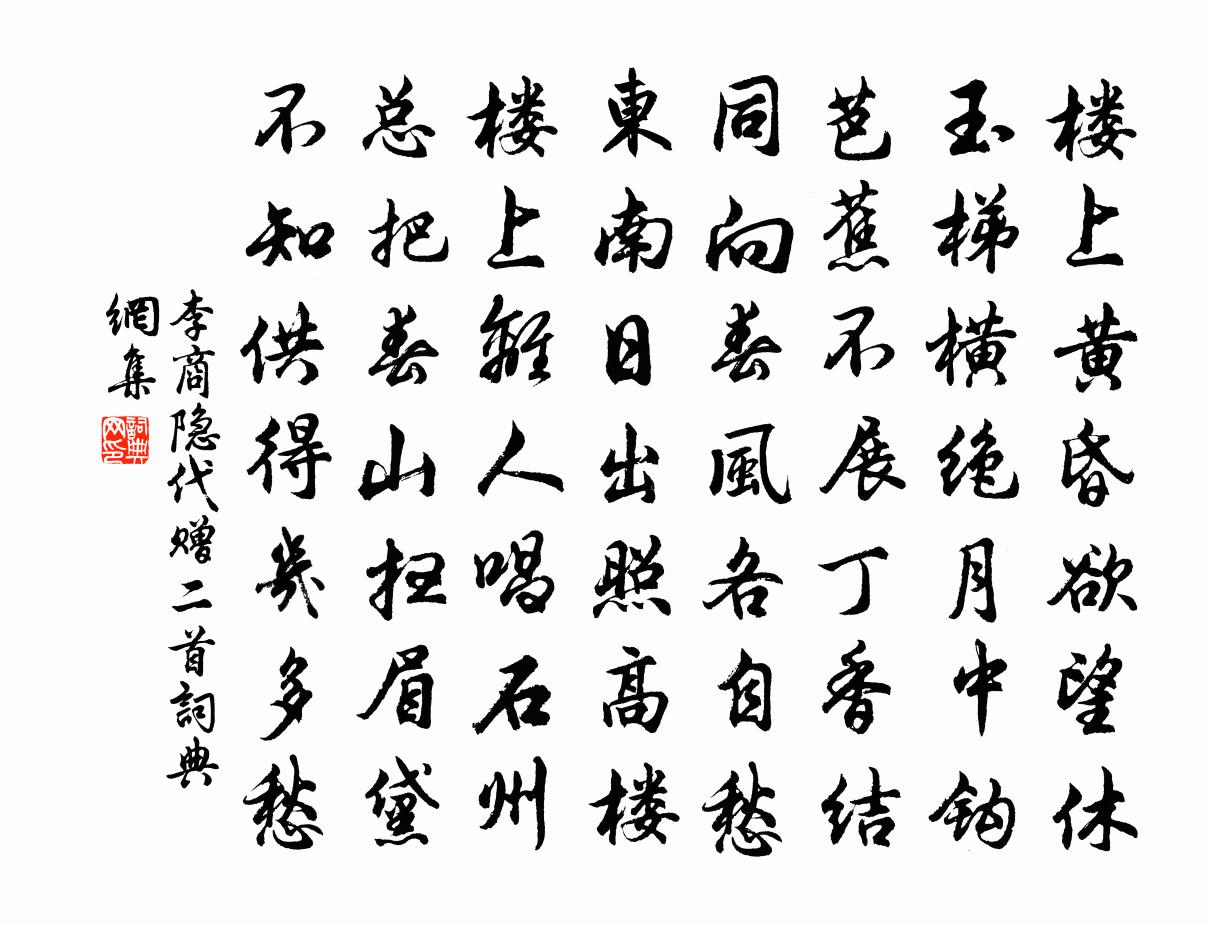 楼上黄昏欲望休
玉梯横绝月中钩
芭蕉不展丁香结
同向春風各自愁
東南日出照高楼
楼上離人唱石州
总把春山扫眉黛
不知供得幾多愁
李商隐代赠二首詞典
網集
詞典
网印